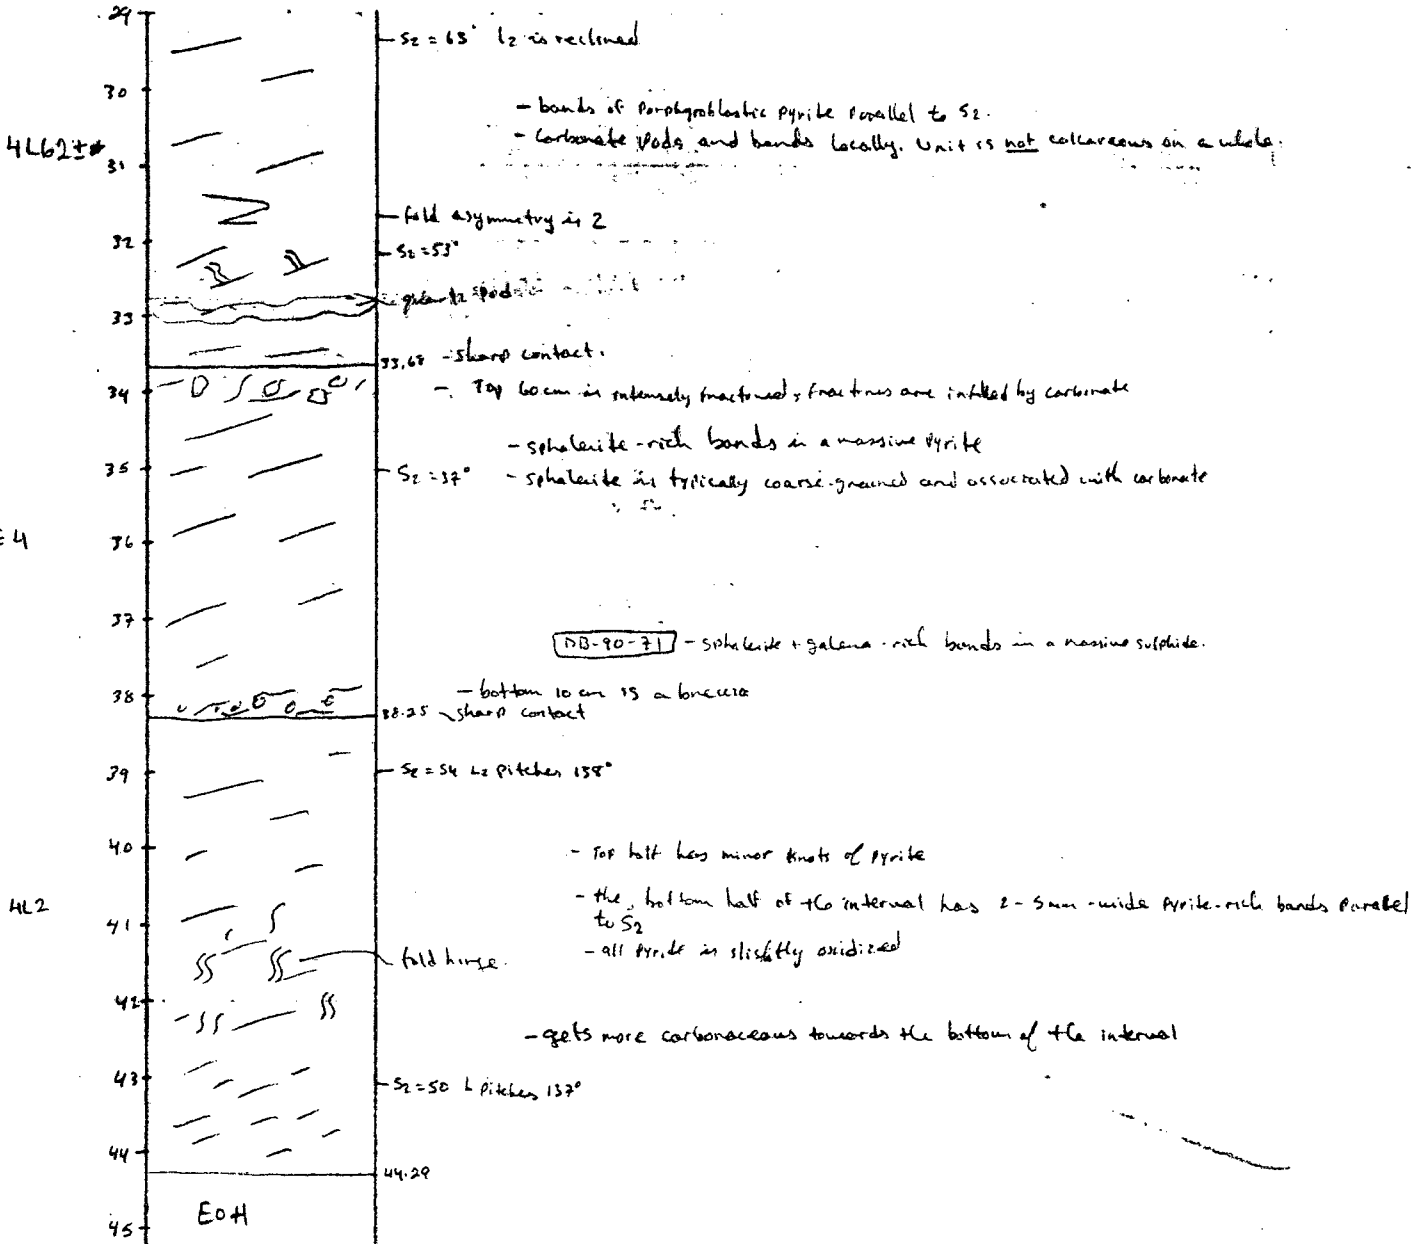 29
S2 = 63° L2 is reclined
30
- bands of Porphyroblastic Pyrite Parallel to S2.
- Carbonate Pods and bands locally. Unit is not calcareous on a whole.
4L62±
31
fold asymmetry is Z
32
S2 = 53°
quartz Pod
33
33.68 - sharp contact.
34
- Top 60 cm is intensely fractured, fractures are infilled by carbonate
- sphalerite-rich bands in a massive Pyrite
35
S2 = 37°
- sphalerite is typically coarse-grained and associated with carbonate
E4
36
37
DB-90-71 - sphalerite + galena-rich bands in a massive sulphide.
38
- bottom 10 cm is a breccia
38.25 sharp contact
39
S2 = 54 L2 Pitches 138°
40
- Top half has minor knots of Pyrite
4L2
- the bottom half of the interval has 2-5mm-wide Pyrite-rich bands Parallel
to S2
41
- all Pyrite is slightly oxidized
fold hinge.
42
- gets more carbonaceous towards the bottom of the interval
43
S2 = 50 L Pitches 137°
44
44.29
EOH
45